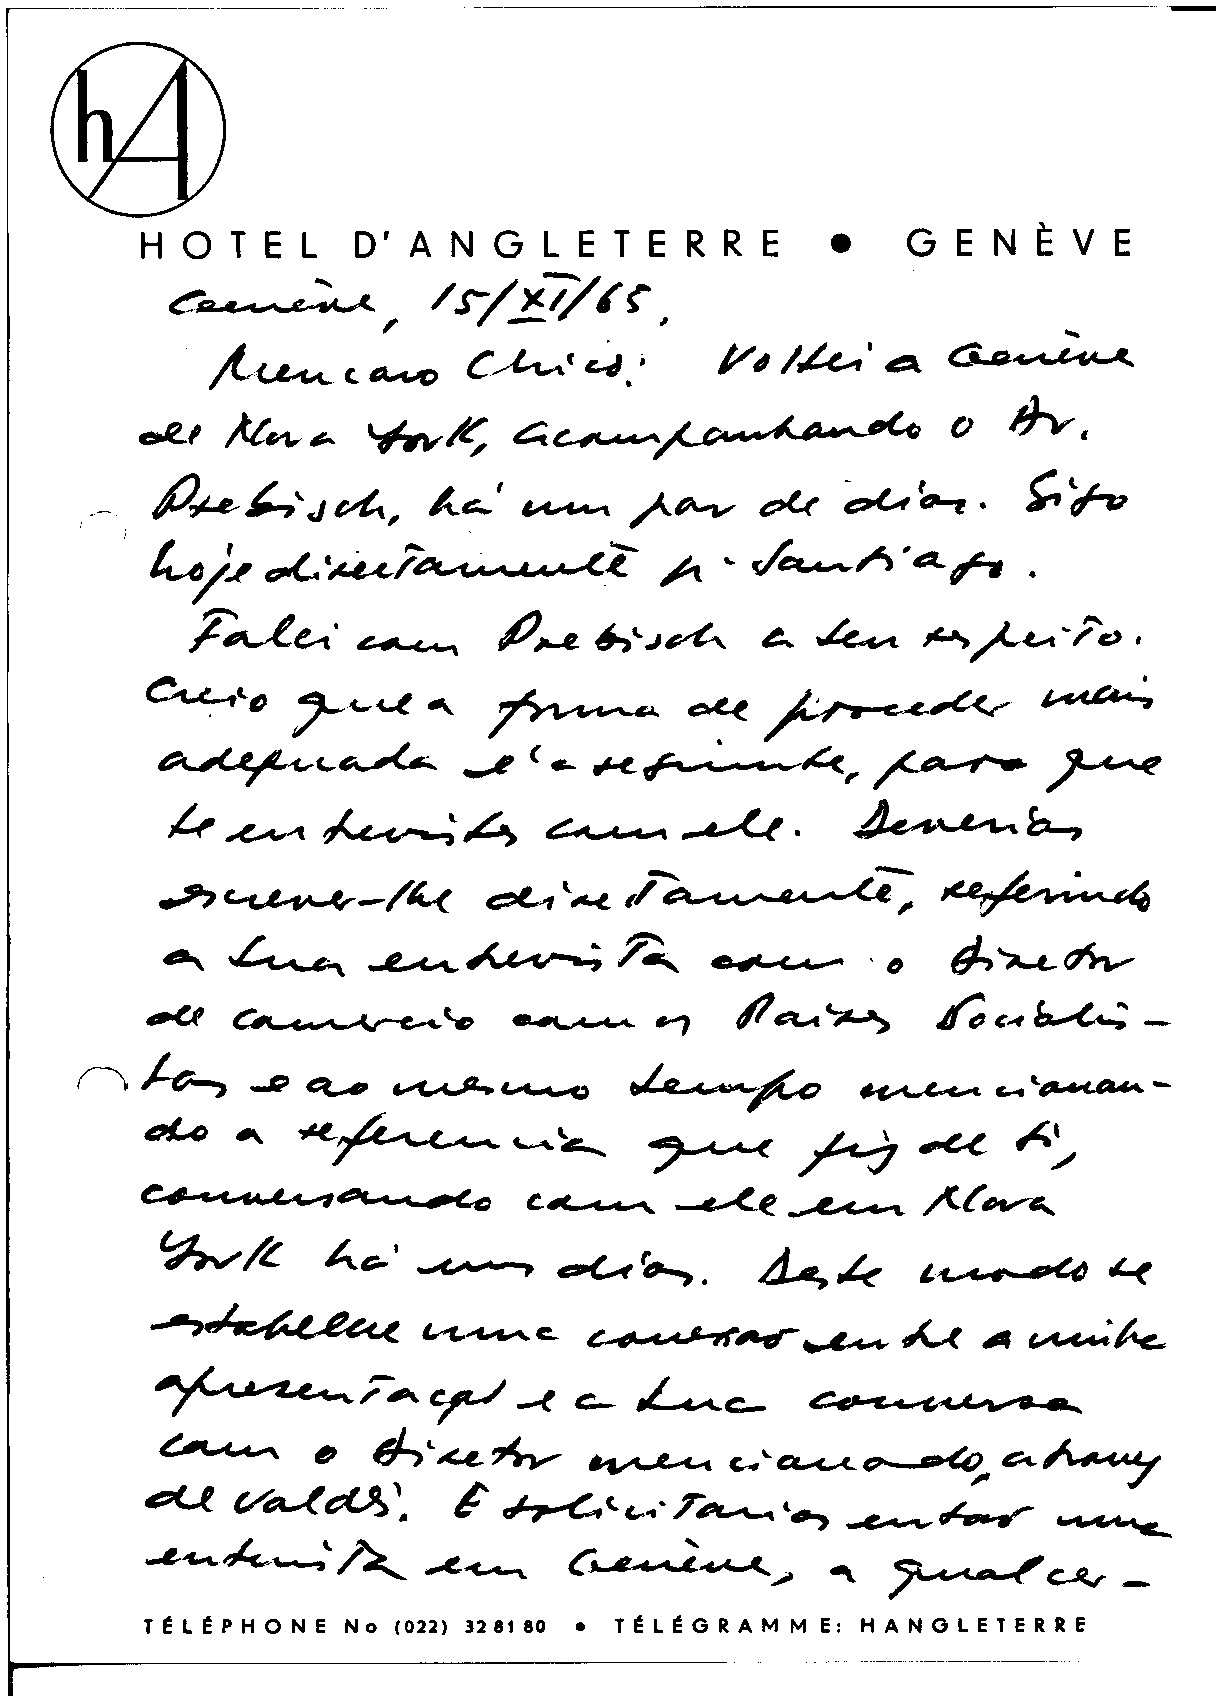 hA
HOTEL D'ANGLETERRE • GENÈVE
Genève, 15/XI/65.
Meu caro Chico: Voltei a Genève
de Nova York, acompanhando o Dr.
Prebisch, há um par de dias. Sigo
hoje diretamente p. Santiago.
Falei com Prebisch a seu respeito.
Creio que a forma de proceder mais
adequada é a seguinte, para que
te entrevistes com ele. Deverias
escrever-lhe diretamente, referindo
a tua entrevista com o Diretor
de comercio com os Paises Socialis-
tas e ao mesmo tempo mencionan-
do a referencia que fiz de ti,
conversando com ele em Nova
York há uns dias. Deste modo se
estabelece uma conexão entre a minha
apresentação e a tua conversa
com o Diretor mencionado, atravez
de Valdés. E solicitarias então uma
entrevista em Genève, a qual cer-
TÉLÉPHONE No (022) 32 81 80 • TÉLÉGRAMME: HANGLETERRE